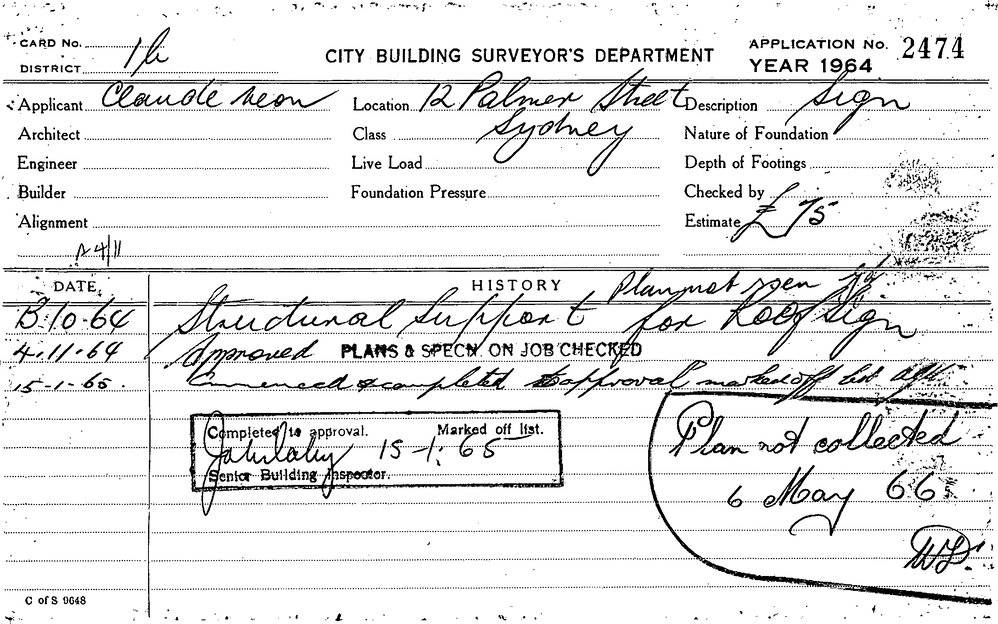 CARD No. 1b
DISTRICT
CITY BUILDING SURVEYOR'S DEPARTMENT
APPLICATION No. 2474
YEAR 1964
Applicant Claude Neon
Location 12 Palmer Street
Sydney
Description Sign
Architect
Class
Nature of Foundation
Engineer
Live Load
Depth of Footings
Builder
Foundation Pressure
Checked by
Alignment
Estimate £75
A 4/11
DATE
HISTORY
Plan not seen
13.10.64 Structural Support for Roof Sign
4.11.64 Approved PLANS & SPECN. ON JOB CHECKED
15-1-65. Commenced & completed to approval marked off list
Completed to approval. Marked off list.
15-1.65
Senior Building Inspector.
Plan not collected
6 May 66
WD.
C of S 9648